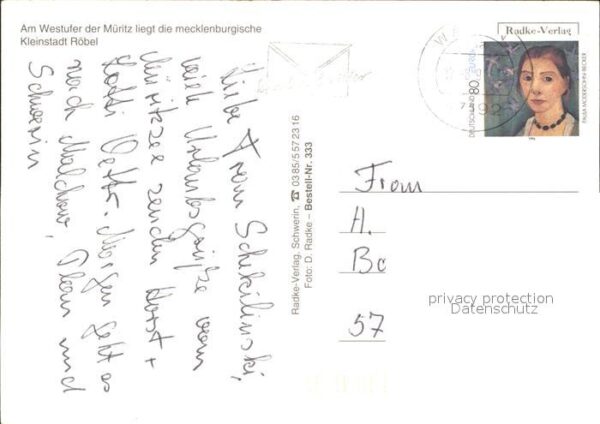 Am Westufer der Müritz liegt die mecklenburgische
Kleinstadt Röbel
Liebe Frau
viele Urlaubsgrüße vom
Müritzsee senden Horst +
Lotti Morgen geht es
nach Malchow, Plau und
Schwerin
Radke-Verlag, Schwerin, ☎ 0385/557 23 16
Foto: D. Radke – Bestell-Nr. 333
Radke-Verlag
DEUTSCHLAND 80
PAULA MODERSOHN-BECKER
Frau
H.
Be
57
privacy protection
Datenschutz